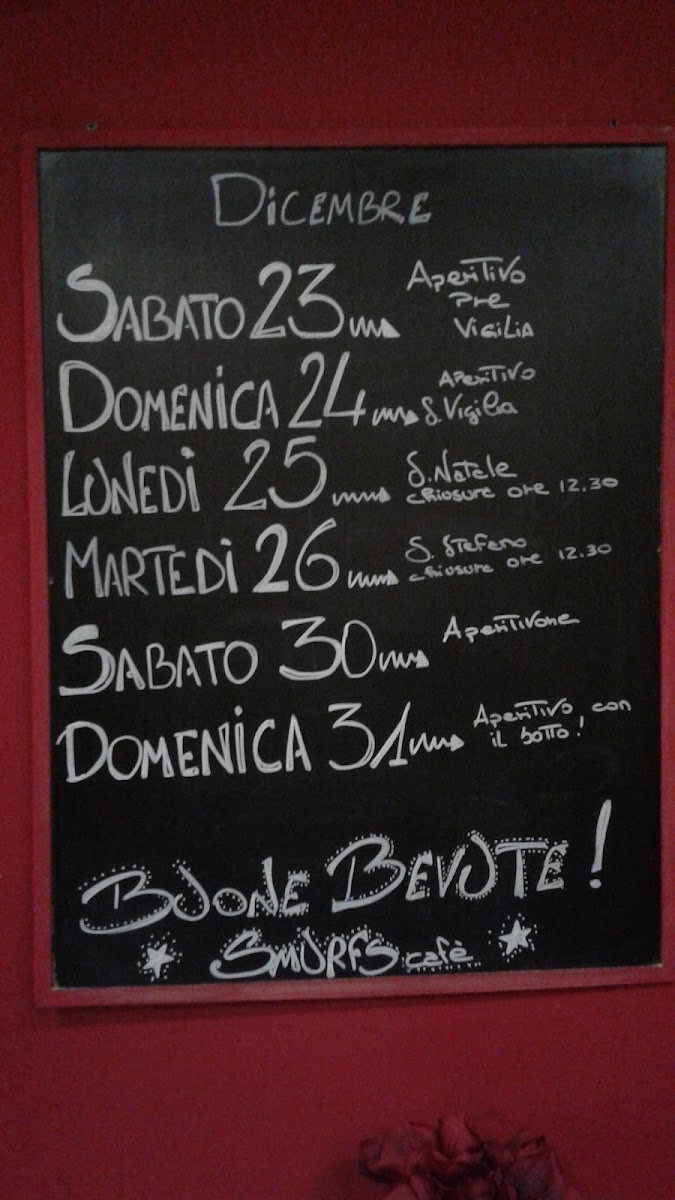 DiCEMBRE
SABATO 23 APERITIVO
PRE
ViGiLiA
DOMENiCA 24 APERITIVO
S. Vigilia
LUNEDì 25 S. NATALE
chiusura ore 12.30
MARTEDì 26 S. STEFANO
chiusura ore 12.30
SABATO 30 APERITIVONE
DOMENiCA 31 APERITIVO, con
iL bOTTO!
BUONE BEVUTE!
SMURFS cafè